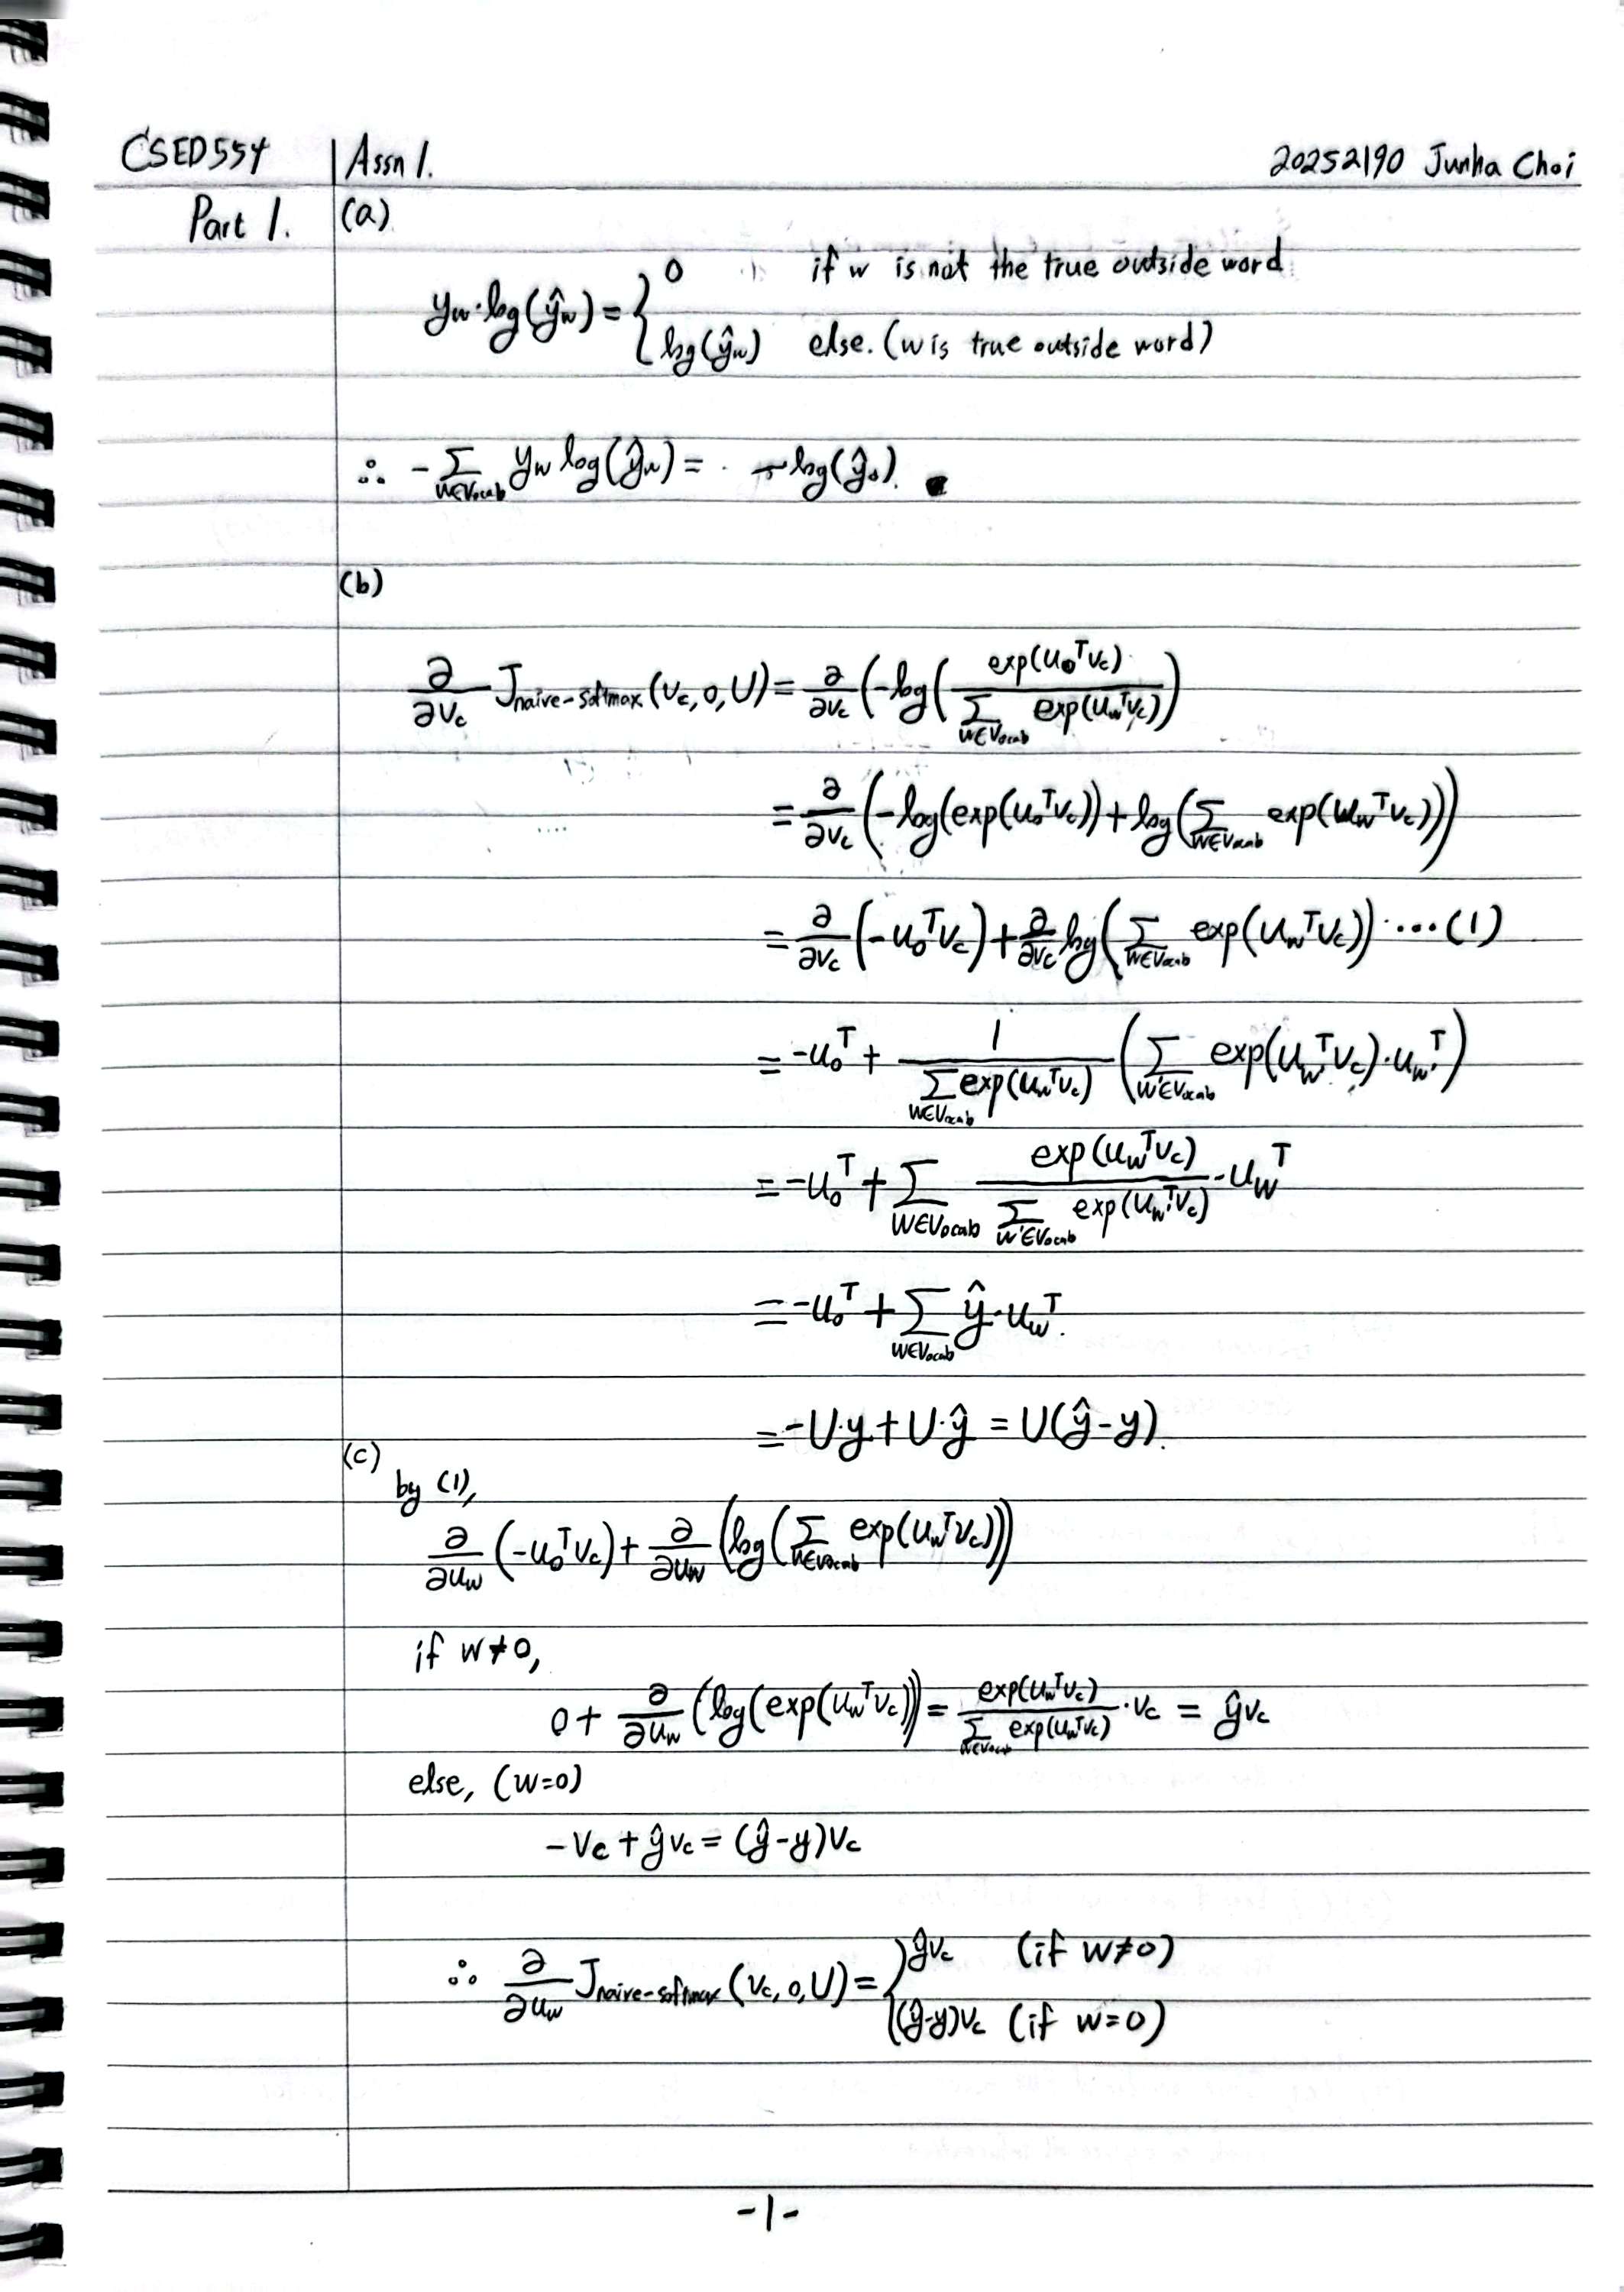 CSED554 Assn 1. 20252190 Junha Choi
Part 1. (a)
y_w·log(ŷ_w) = { 0 if w is not the true outside word
log(ŷ_w) else. (w is true outside word)
∴ -∑_{w∈Vocab} y_w log(ŷ_w) = -log(ŷ_o).
(b)
∂/∂v_c J_{naive-softmax}(v_c, o, U) = ∂/∂v_c (-log(exp(u_o^T v_c) / ∑_{w∈Vocab} exp(u_w^T v_c)))
= ∂/∂v_c (-log(exp(u_o^T v_c)) + log(∑_{w∈Vocab} exp(u_w^T v_c)))
= ∂/∂v_c (-u_o^T v_c) + ∂/∂v_c log(∑_{w∈Vocab} exp(u_w^T v_c)) ····(1)
= -u_o^T + 1/(∑_{w∈Vocab} exp(u_w^T v_c)) (∑_{w'∈Vocab} exp(u_{w'}^T v_c)·u_{w'}^T)
= -u_o^T + ∑_{w∈Vocab} exp(u_w^T v_c) / (∑_{w'∈Vocab} exp(u_{w'}^T v_c)) · u_w^T
= -u_o^T + ∑_{w∈Vocab} ŷ·u_w^T.
= -U·y + U·ŷ = U(ŷ-y).
(c)
by (1),
∂/∂u_w (-u_o^T v_c) + ∂/∂u_w (log(∑_{w∈Vocab} exp(u_w^T v_c)))
if w≠o,
0 + ∂/∂u_w (log(exp(u_w^T v_c))) = exp(u_w^T v_c) / (∑_{w∈Vocab} exp(u_w^T v_c)) · v_c = ŷv_c
else, (w=o)
-v_c + ŷv_c = (ŷ-y)v_c
∴ ∂/∂u_w J_{naive-softmax}(v_c, o, U) = { ŷv_c (if w≠o)
(ŷ-y)v_c (if w=o)
-1-